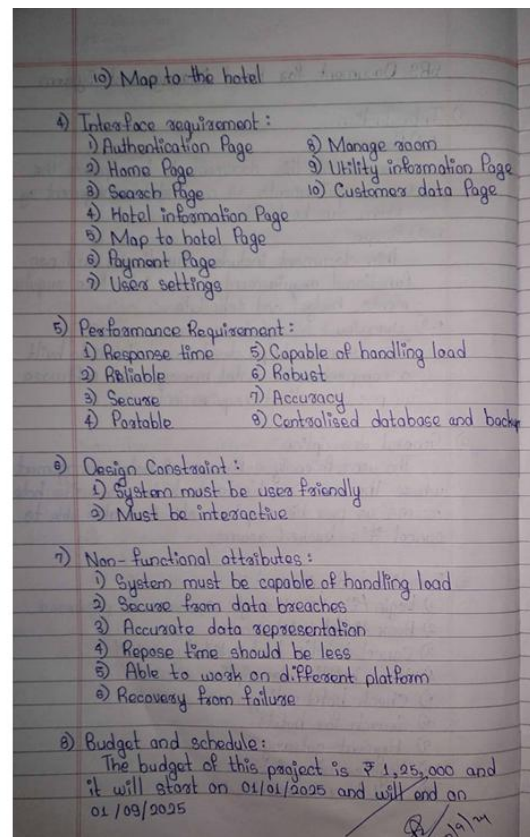 10) Map to the hotel
4) Interface requirement :
1) Authentication Page
2) Home Page
3) Search Page
4) Hotel information Page
5) Map to hotel Page
6) Payment Page
7) User settings
8) Manage room
9) Utility information Page
10) Customer data Page
5) Performance Requirement :
1) Response time
2) Reliable
3) Secure
4) Portable
5) Capable of handling load
6) Robust
7) Accuracy
8) Centralised database and backup
6) Design Constraint :
1) System must be user friendly
2) Must be interactive
7) Non-functional attributes :
1) System must be capable of handling load
2) Secure from data breaches
3) Accurate data representation
4) Repose time should be less
5) Able to work on different platform
6) Recovery from failure
8) Budget and schedule :
The budget of this project is ₹ 1,25,000 and
it will start on 01/01/2025 and will end on
01/09/2025